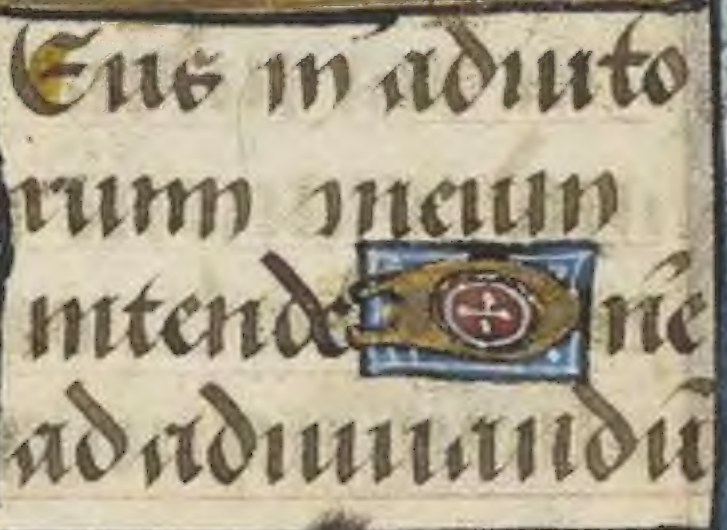 Eus in adiuto
rium meum
intende ñe
ad adiuuandũ